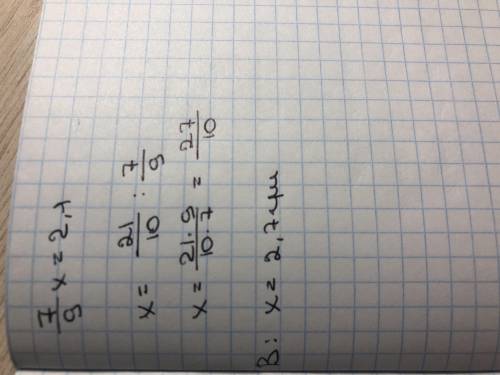 7/9 x = 2,1
x = 21/10 : 7/9
x = 21·9/10·7 = 27/10
В: x = 2,7 грн